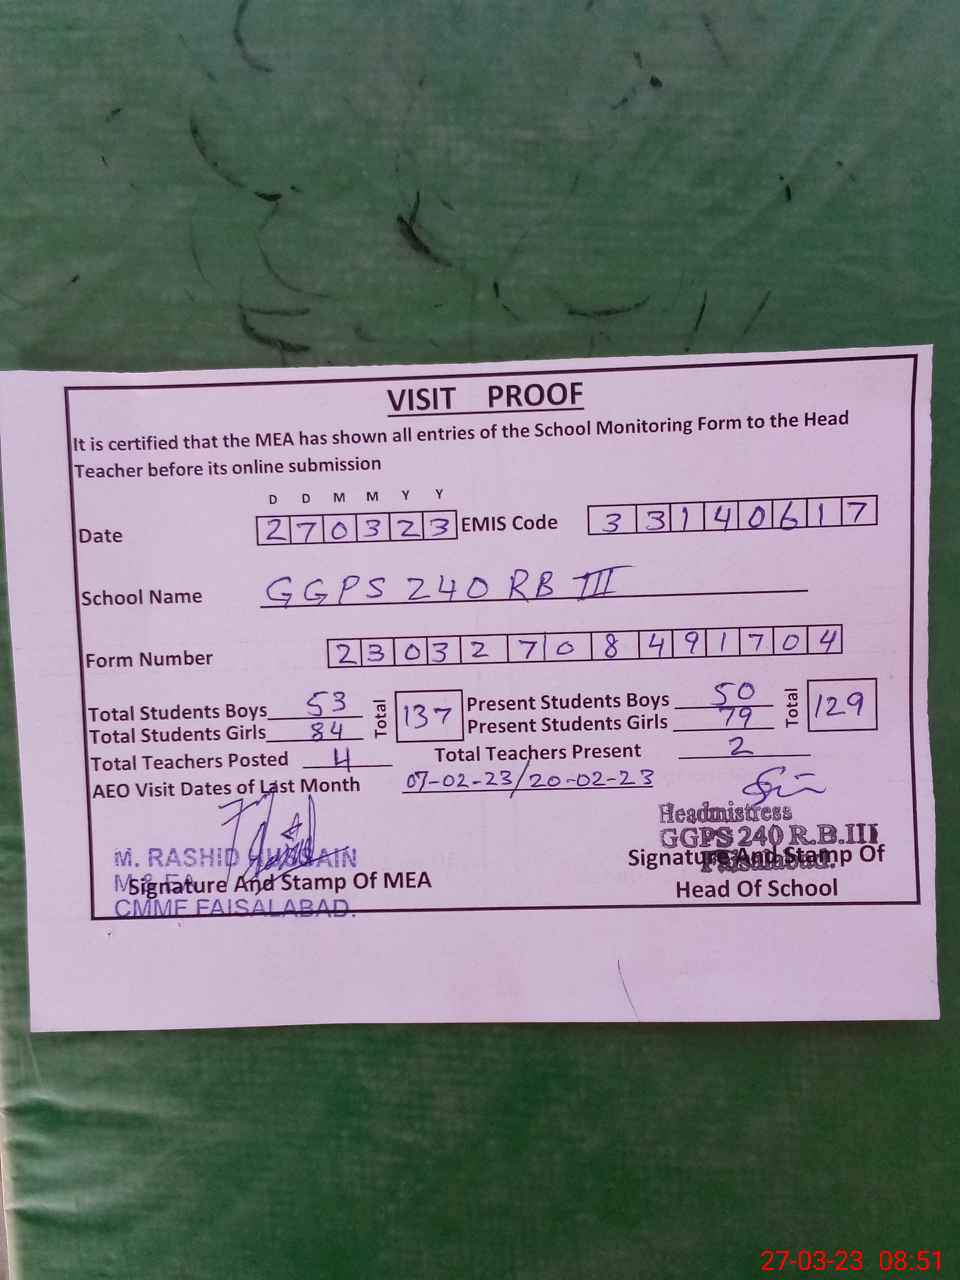 VISIT PROOF
It is certified that the MEA has shown all entries of the School Monitoring Form to the Head
Teacher before its online submission
D D M M Y Y
Date 270323 EMIS Code 33140617
School Name GGPS 240 RB III
Form Number 23032708491704
Total Students Boys 53 Total 137 Present Students Boys 50 Total 129
Total Students Girls 84 Present Students Girls 79
Total Teachers Posted 4 Total Teachers Present 2
AEO Visit Dates of Last Month 07-02-23/20-02-23
Headmistress
GGPS 240 R.B.III
Faisalabad.
M. RASHID HUSSAIN
Signature And Stamp Of MEA
CMMF FAISALABAD.
Signature And Stamp Of
Head Of School
27-03-23 08:51